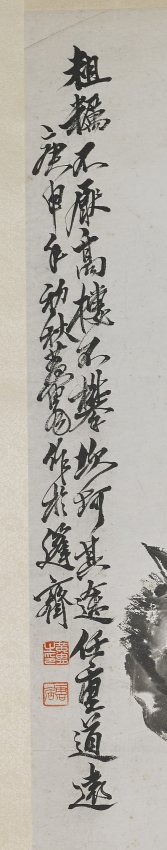 粗糲不厭高樓不攀坎坷其途任重道遠
庚申年初秋黃胄作於齋